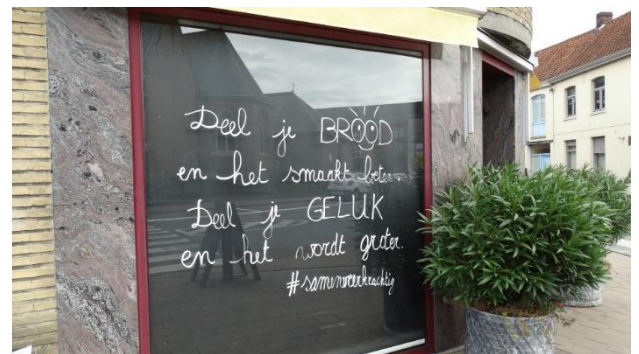 Deel je BROOD
en het smaakt beter.
Deel je GELUK
en het wordt groter.
#samenveerkrachtig